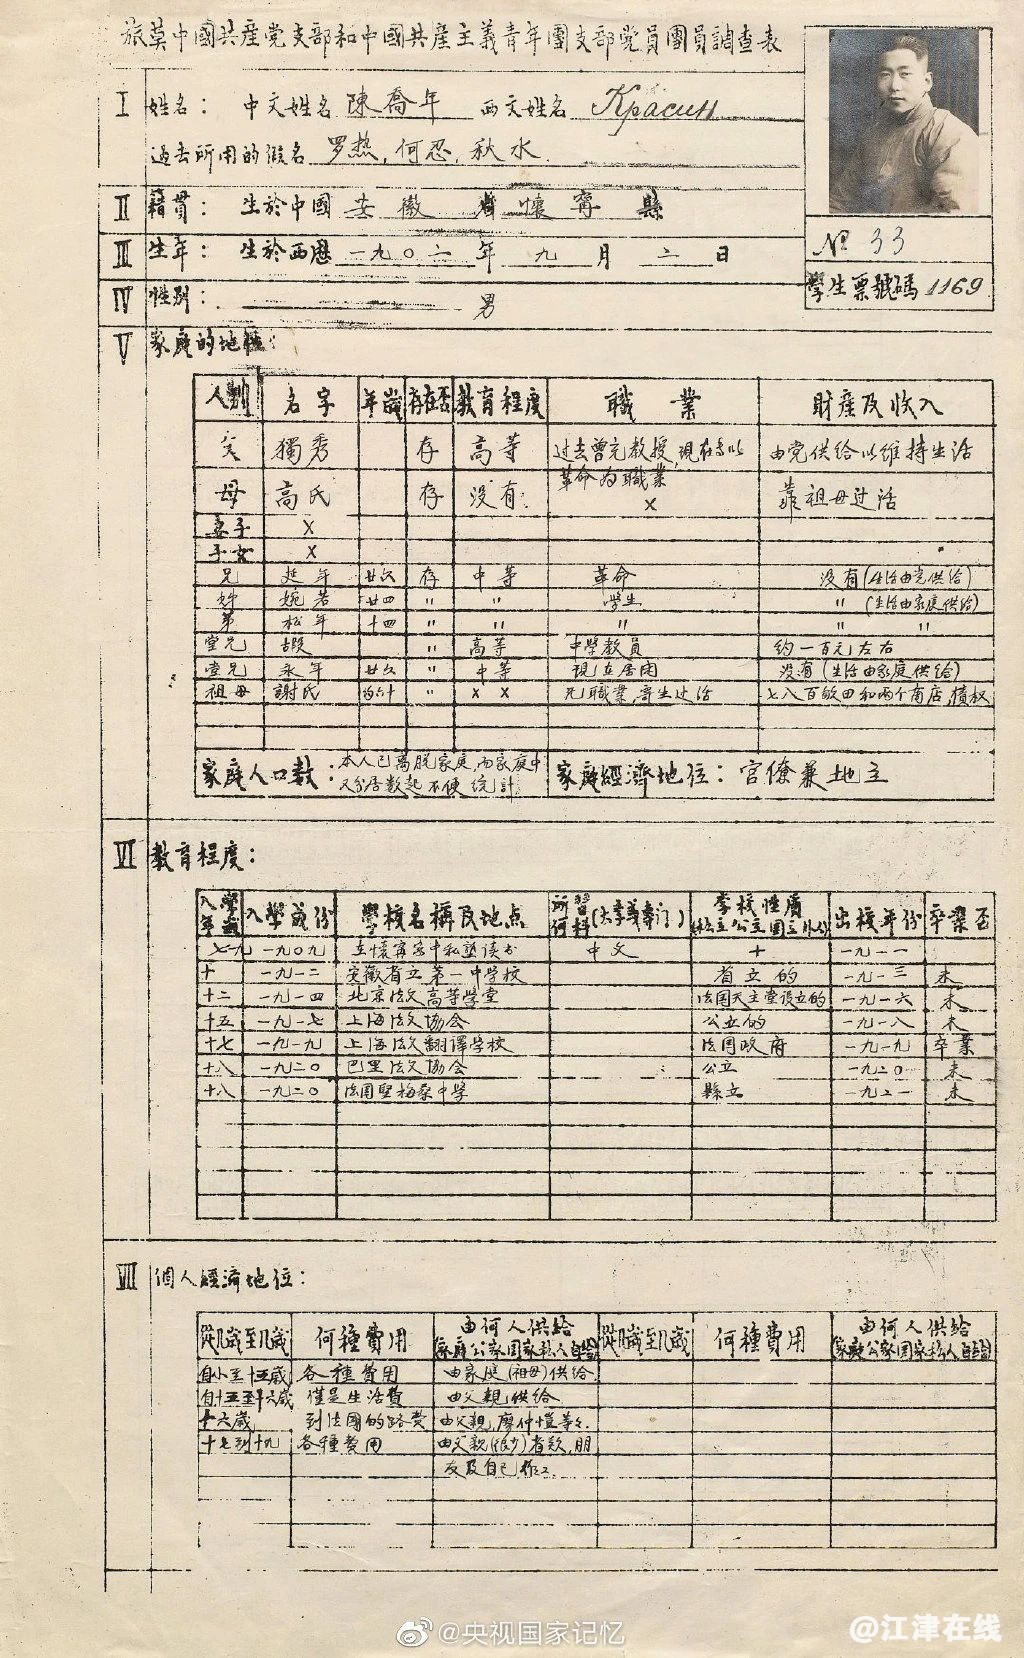 旅莫中國共產党支部和中國共產主義青年團支部党員團員調查表
I 姓名： 中文姓名 陳喬年 西文姓名 Красин
過去所用的假名 罗热，何忍，秋水
II 籍貫： 生於中國 安徽 省 懷寧 縣
III 生年： 生於西歷 一九〇二 年 九 月 二 日
IV 性别： 男
№ 33
學生票號碼 1169
V 家庭的地位：
人别 名字 年歲 存在否 教育程度 職業 財產及收入
父 獨秀 存 高等 过去曾充教授，現在专以革命为職業 由党供给以维持生活
母 高氏 存 没有 × 靠祖母过活
妻子 ×
子女 ×
兄 延年 廿六 存 中等 革命 没有(生活由党供给)
姊 婉若 廿四 〃 〃 学生 〃 (生活由家庭供给)
弟 松年 十四 〃 〃 〃 〃 〃
堂兄 遐 〃 高等 中學教員 约一百元左右
堂兄 永年 廿六 〃 中等 現在居闲 没有(生活由家庭供给)
祖母 謝氏 约六十 〃 × × 无職業，寄生过活 七八百畝田和两个商店，債权
家庭人口數： 本人已离脱家庭，而家庭中又分居数起不便统計 家庭經濟地位： 官僚兼地主
VI 教育程度：
入學年歲 入學歲份 學校名稱及地点 所習何科(大學或專门) 學校性質(私立公立国立外人) 出校年份 卒業否
七一九 一九〇九 在懷寧家中私塾读书 中文 + 一九一一
十 一九一二 安徽省立第一中学校 省立的 一九一三 未
十二 一九一四 北京法文高等学堂 法国天主堂设立的 一九一六 未
十五 一九一七 上海法文协会 公立的 一九一八 未
十七 一九一九 上海法文翻译学校 法国政府 一九一九 卒業
十八 一九二〇 巴里法文协会 公立 一九二〇 未
十八 一九二〇 法国聖梅桑中学 縣立 一九二一 未
VII 個人經濟地位：
從几歲至几歲 何種費用 由何人供給(家庭公家国家私人自己) 從几歲至几歲 何種費用 由何人供給(家庭公家国家私人自己)
自小至十五歲 各種費用 由家庭(祖母)供给
自十五至十六歲 僅是生活費 由父親供给
十六歲 到法国的路费 由父親，廖仲愷等々
十七到十九 各種費用 由父親(很少)者欵，朋
友及自己作工
@央视国家记忆
@江津在线